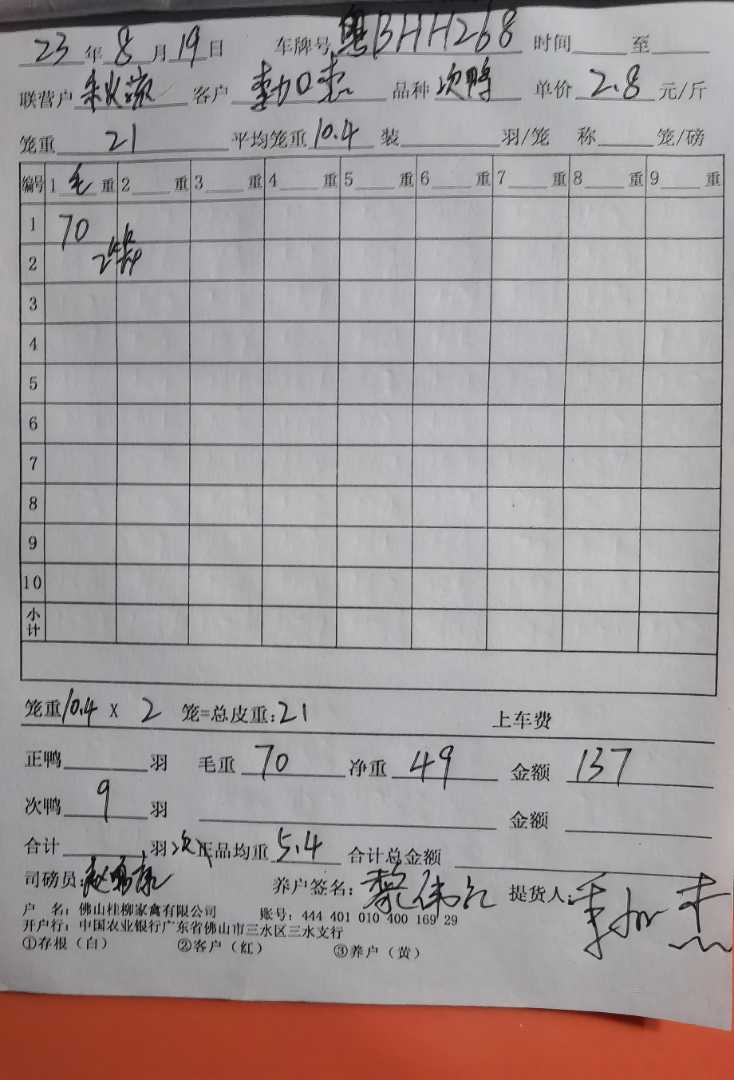 23年8月19日 车牌号 粤BHH268 时间 至
联营户 客户 李加杰 品种 次鸭 单价 2.8 元/斤
笼重 21 平均笼重 10.4 装 羽/笼 称 笼/磅
编号 1 毛 重 2 重 3 重 4 重 5 重 6 重 7 重 8 重 9 重
1 70
2 2
3
4
5
6
7
8
9
10
小计
笼重10.4 X 2 笼=总皮重:21 上车费
正鸭 羽 毛重 70 净重 49 金额 137
次鸭 9 羽 金额
合计 羽 次 正品均重 5.4 合计总金额
司磅员: 养户签名:黎伟 提货人:李加杰
户 名:佛山桂柳家禽有限公司 账号:444 401 010 400 169 29
开户行:中国农业银行广东省佛山市三水区三水支行
①存根(白) ②客户(红) ③养户(黄)